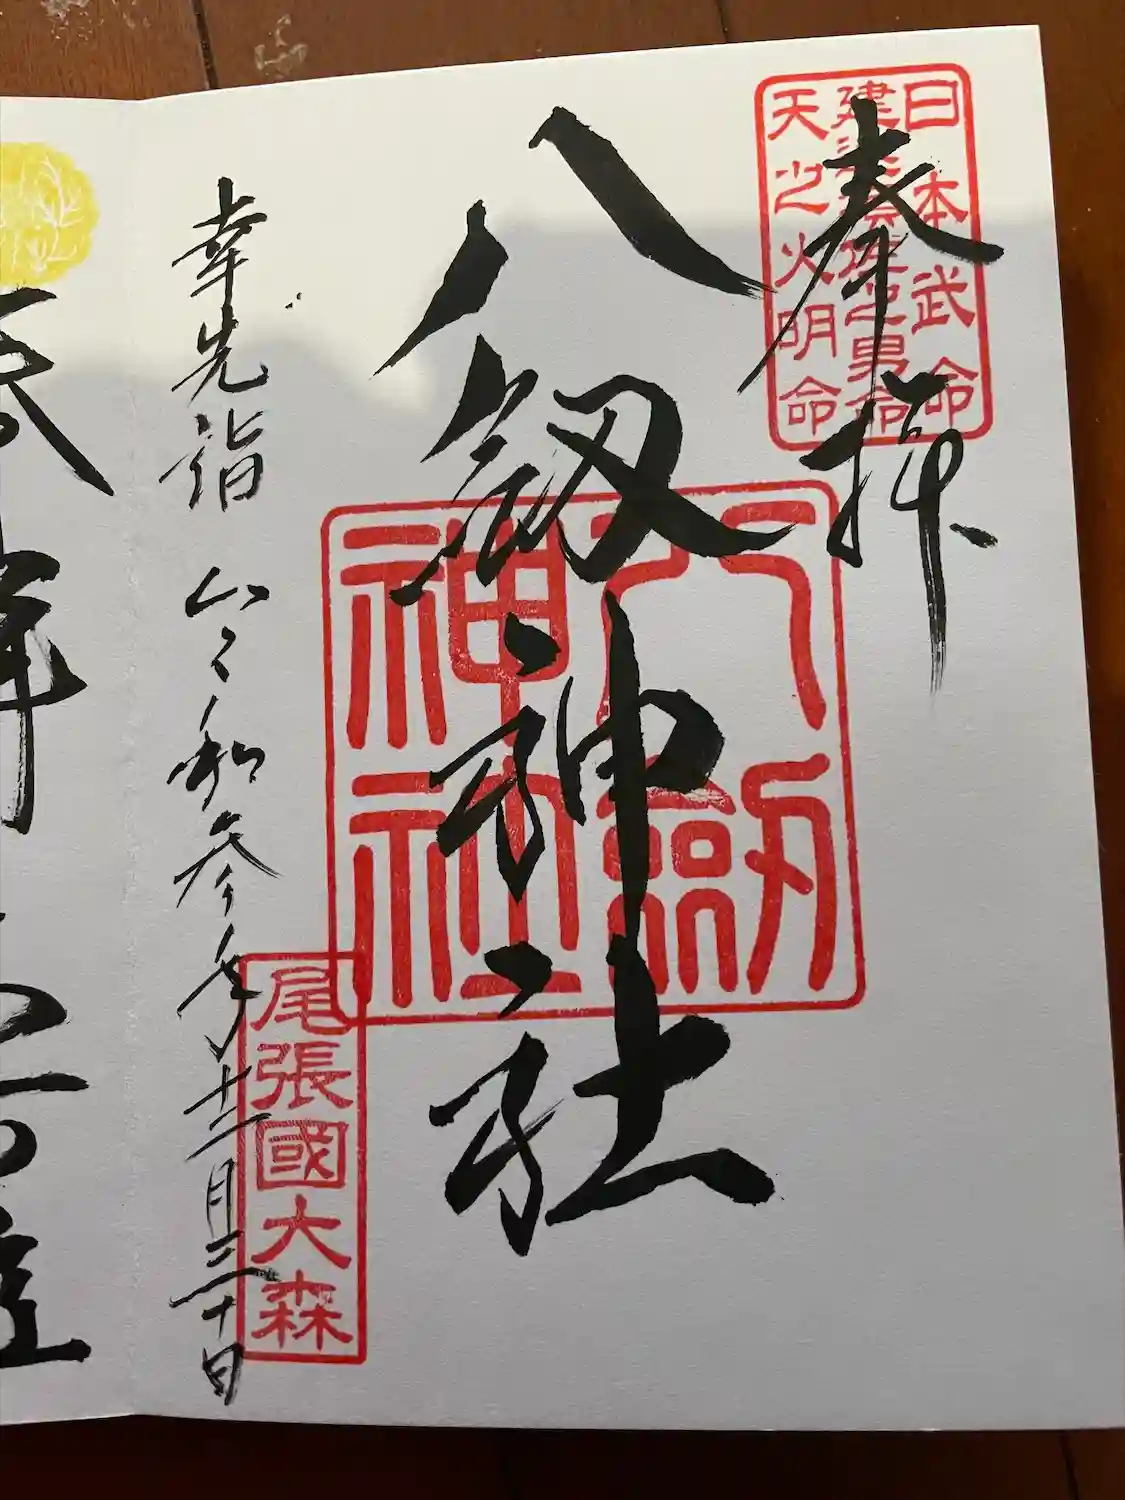 奉拝
日本武命
建津稲種之男命
天之火明命
八剱神社
八劔神社
幸先詣 令和参年十二月三十日
尾張國大森
奉拝